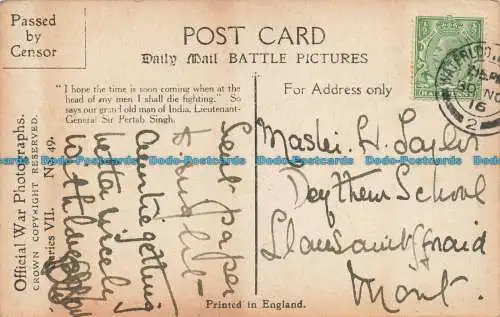 Passed
by
Censor
POST CARD
Daily Mail BATTLE PICTURES
"I hope the time is soon coming when at the
head of my men I shall die fighting." So
says our grand old man of India, Lieutenant-
General Sir Pertab Singh.
For Address only
Official War Photographs.
CROWN COPYRIGHT RESERVED.
Series VII. No. 49.
Sent paper
tonight
Auntie getting
better nicely
with love
Master H. Taylor
Deythem School
Llansaintffraid
Mont.
WATERLOO
30 NO
16
2
Printed in England.